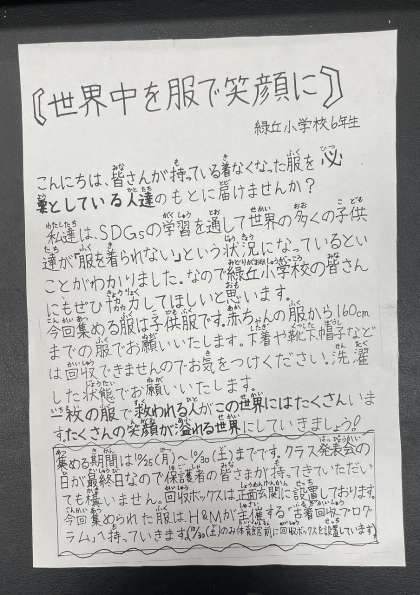 〖世界中を服で笑顔に〗
緑丘小学校6年生
こんにちは、皆さんが持っている着なくなった服を必
要としている人達のもとに届けませんか？
私達は、SDGsの学習を通して世界の多くの子供
達が「服を着られない」という状況になっているとい
ことがわかりました。なので緑丘小学校の皆さん
にもぜひ協力してほしいと思います。
今回集める服は子供服です。赤ちゃんの服から160cm
までの服でお願いいたします。下着や靴下、帽子など
は回収できませんのでお気をつけください。洗濯
した状態でお願いいたします。
一枚の服で救われる人がこの世界にはたくさんいま
す。たくさんの笑顔が溢れる世界にしていきましょう！
集める期間は10/25(月)〜10/30(土)までです。クラス発表会の
日が最終日なので保護者の皆さまが持ってきていただい
ても構いません。回収ボックスは正面玄関に設置しております。
今回集められた服は、H&Mが主催する"古着回収プログ
ラム"へ持っていきます。(10/30(土)のみ体育館前に回収ボックスを設置しています)